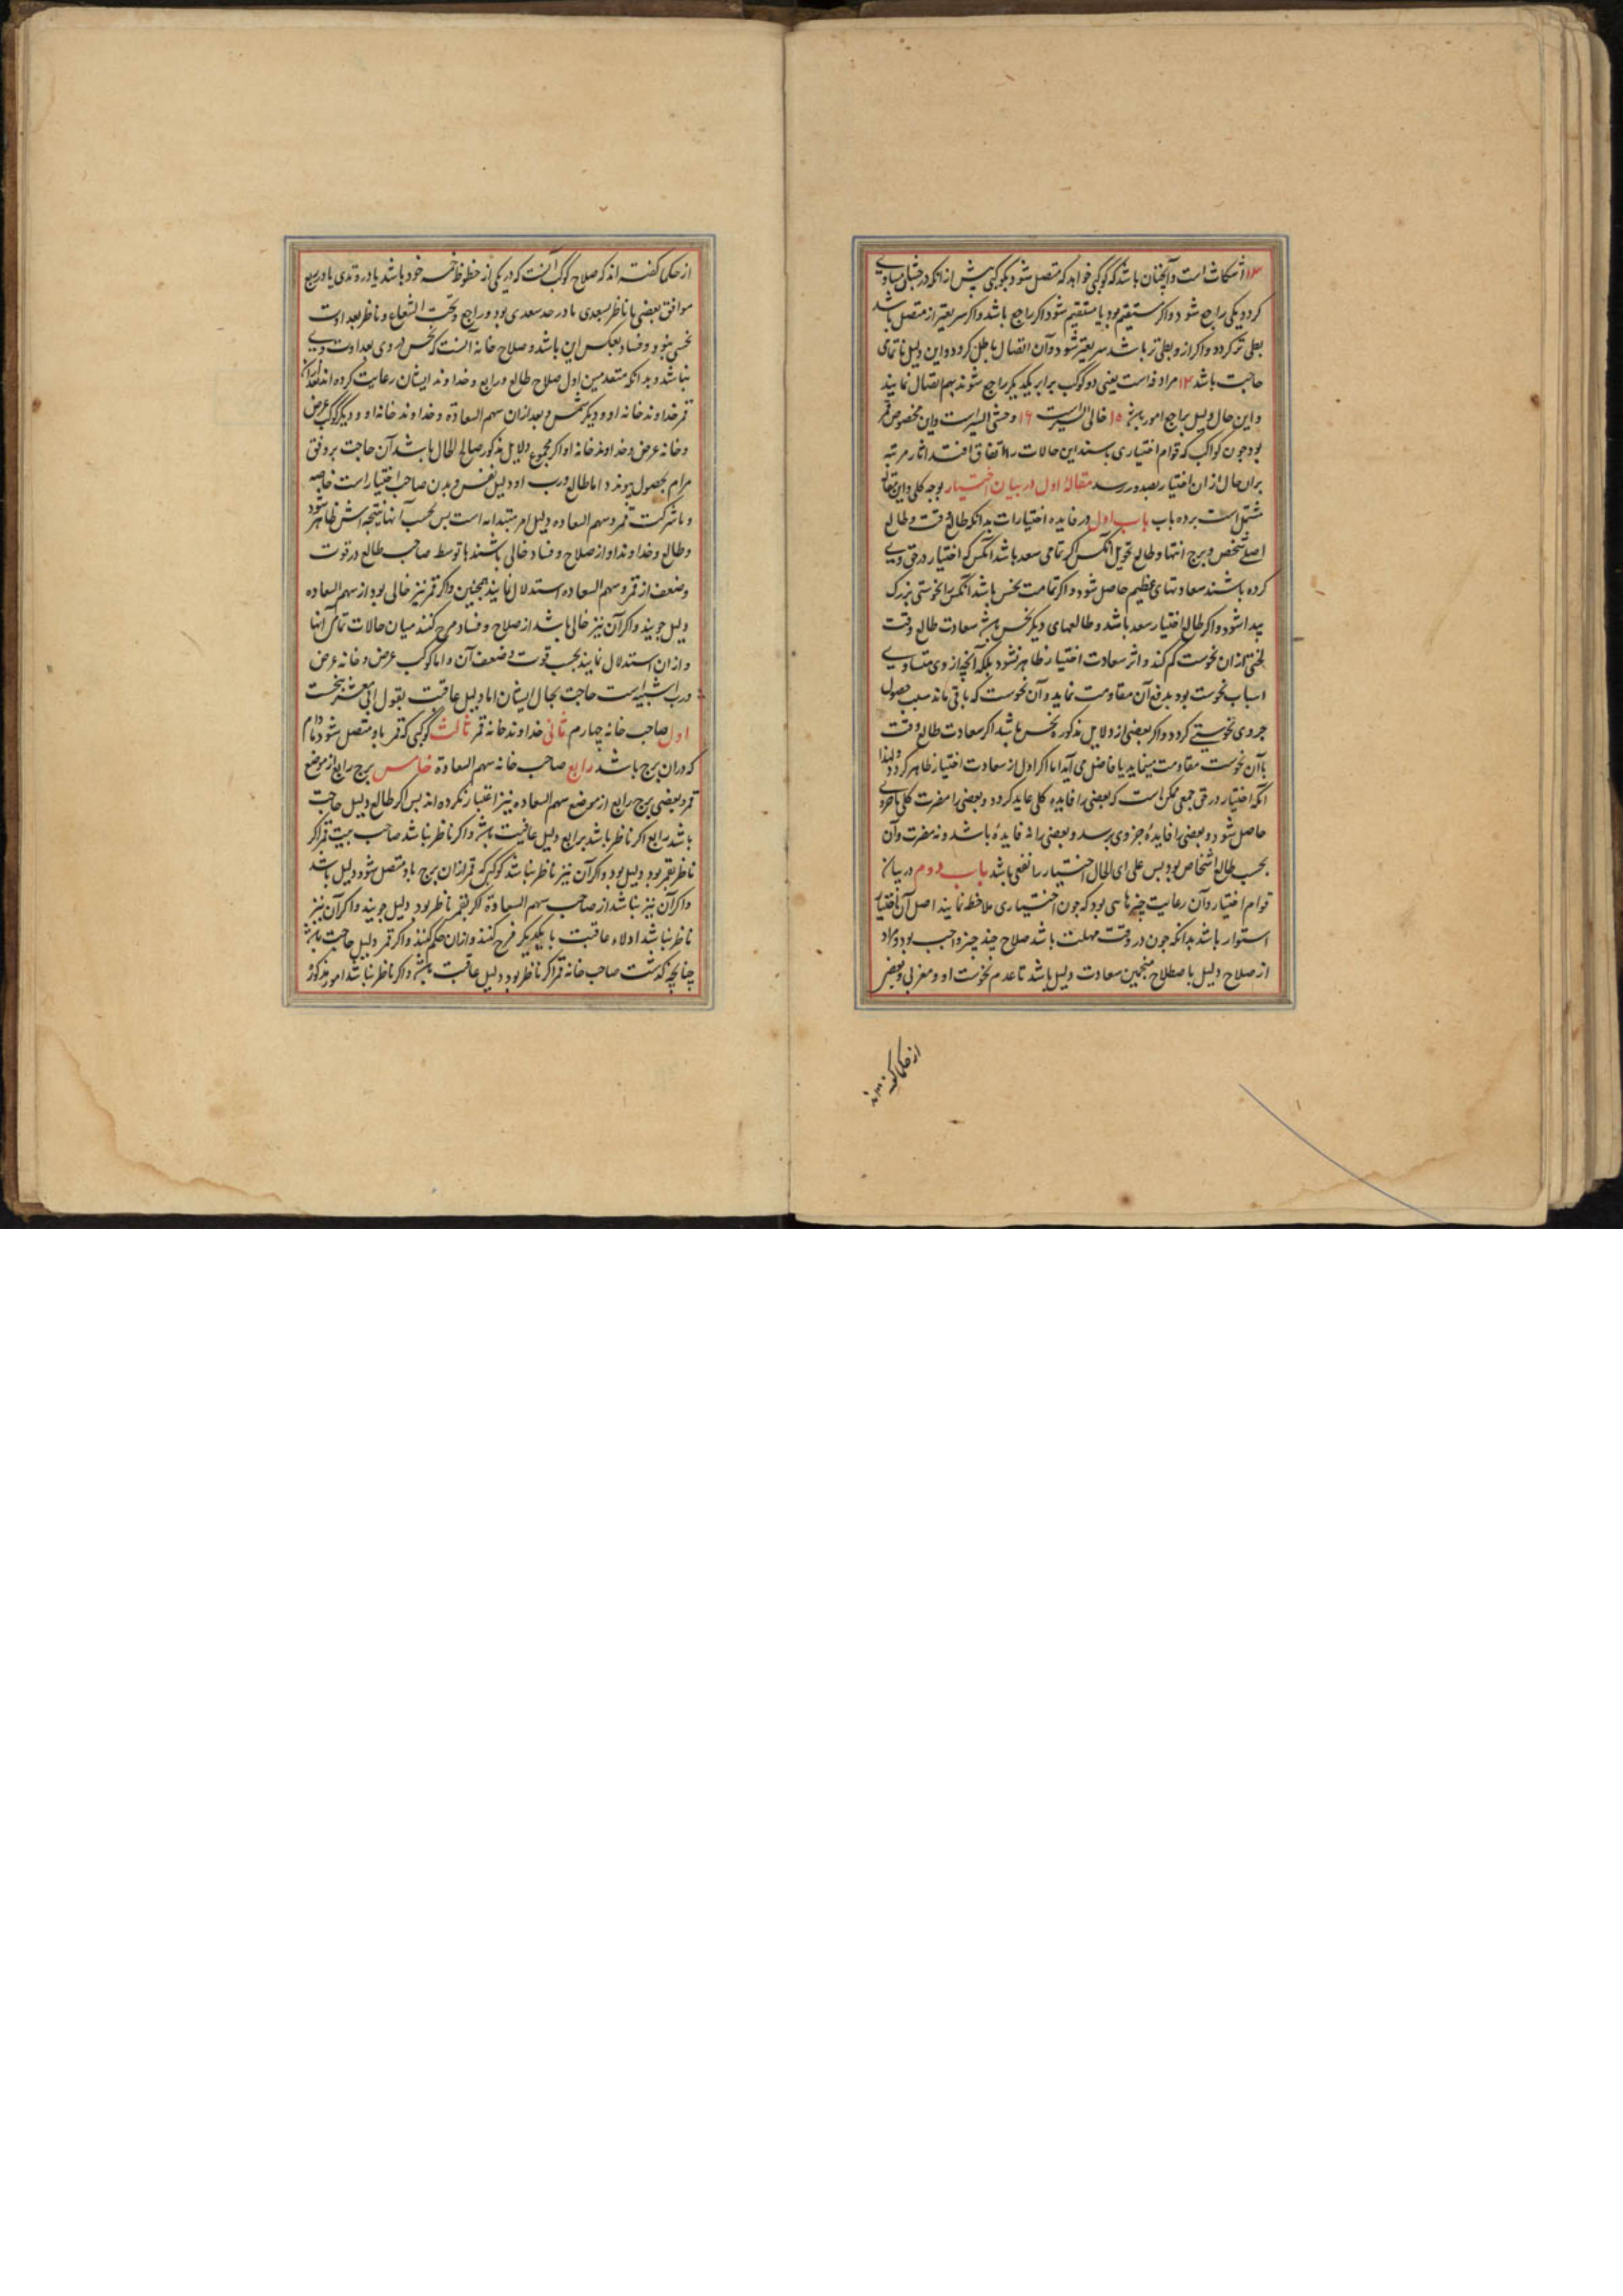 ۱۳ انتکاث است و آنچنان باشد که کوکبی خواهد که متصل شود بکوکبی پیش از آنکه درجتین مساوی
کردد یکی راجع شود و اکر مستقیم بود یا مستقیم شود اکر راجع باشد و اکر سریعتر از متصل باشد
بطی تر کردد و اکر از و بطی تر باشد سریعتر شود و آن اتصال باطل کردد و این دلیل ناتمامی
حاجت باشد ۱۴ مرادفه است یعنی دو کوکب برابر یکدیکر راجع شوند بهم اتصال نمایند
و این حال دلیل براجع امور باشد ۱۵ خالی السیر است ۱۶ وحشی السیر است و این مخصوص قمر
بود چون کواکب که قوام اختیاری بستند این حالات را اتفاق افتد اثار مرتبه
بران حال از ان اختیار بصدور رسد مقالهٔ اول در بیان اختیار بوجه کلی و این مقاله
مشتمل است بر ده باب باب اول در فایده اختیارات بدانکه طالع وقت و طالع
اصل شخص و برج انتها و طالع تحویل آنکس اکر تمامی سعد باشد آنکس که اختیار در حق وی
کرده باشند سعادتهای عظیم حاصل شود و اکر تمامت نحس باشد آنکس را نحوستی بزرک
پیدا شود و اکر طالع اختیار سعد باشد و طالعهای دیکر نحس باشد سعادت طالع وقت
لختی از ان نحوست کم کند و اثر سعادت اختیار ظاهر نشود بلکه آنچه از وی متساوی
اسباب نحوست بود بدفع آن مقاومت نماید و آن نحوست که باقی ماند سبب حصول
جزوی نحوستی کردد و اکر بعضی از دلایل مذکوره نحس باشد اکر سعادت طالع وقت
با آن نحوست مقاومت مینماید یا فاضل می آید اما اکر اول از سعادت اختیار ظاهر کردد ولهذا
آنکه اختیار در حق جمعی ممکن است که بعضی را فایده کلی عاید کردد و بعضی را مضرت کلی یا جزوی
حاصل شود و بعضی را فایدهٔ جزوی برسد و بعضی را نه فایدهٔ باشد و نه مضرت و آن
بحسب طالع اشخاص بود پس علی ای الحال اختیار را نفعی باشد باب دوم در بیان
قوام اختیار و آن رعایت چیزهاسی بود که چون اختیاری ملاحظه نمایند اصل آن اختیار
استوار باشد بدانکه چون در وقت مهلت باشد صلاح چند چیز واجب بود و مراد
از صلاح دلیل باصطلاح منجمین سعادت دلیل باشد تا عدم نحوست او و مغربی و بعضی
از حکما کفته اند
از حکما کفته اند که صلاح کوکب آنست که در یکی از حظوظ خمسه خود باشد یا در وتدی یا در ربع
موافق بعضی یا ناظر بسعدی یا در حد سعدی بود و راجع و تحت الشعاع و ناظر بعداوت
نحسی نبود و فساد بعکس این باشد و صلاح خانه آنست که نحس در وی بعداوت وی
نباشد و بدانکه متقدمین اول صلاح طالع و رابع و خداوند ایشان رعایت کرده اند بعد از ان
قمر خداوند خانه او و دیکر شمس و بعد از ان سهم السعادة و خداوند خانه او و دیکر کوکب غرض
و خانه غرض و خداوند خانه او اکر مجموع دلایل مذکور صالح الحال باشد آن حاجت بر وفق
مرام بحصول پیوندد اما طالع و رب او دلیل نفس و بدن صاحب اختیار است خاصه
و با شرکت قمر و سهم السعاده دلیل امر مبتدا به است پس بحسب آنها نتیجه اش ظاهر شود
و طالع و خداوند او از صلاح و فساد خالی باشند یا توسط صاحب طالع در قوت
و ضعف از قمر و سهم السعاده استدلال نمایند همچنین و اکر قمر نیز خالی بود از سهم السعاده
دلیل جویند و اکر آن نیز خالی باشد از صلاح و فساد مزج کنند میان حالات تمامی آنها
و از ان استدلال نمایند بحسب قوت و ضعف آن و اما کوکب غرض و خانه غرض
و رب است حاجت بحال ایشان اما دلیل عاقبت بقول ابی معشر پنجست
اول صاحب خانه چهارم ثانی خداوند خانه قمر ثالث کوکبی که قمر باو متصل شود مادام
که در ان برج باشد رابع صاحب خانه سهم السعادة خامس برج رابع از موضع
قمر و بعضی برج رابع از موضع سهم السعاده نیز اعتبار نکرده اند پس اکر طالع دلیل حاجت
باشد رابع اکر ناظر باشد برابع دلیل عاقبت باشد و اکر ناظر نباشد صاحب بیت قمر اکر
ناظر بقمر بود دلیل بود و اکر آن نیز ناظر نباشد کوکبی که قمر از ان برج باو متصل شود دلیل باشد
و اکر آن نیز نباشد از صاحب سهم السعادة اکر بقمر ناظر بود دلیل جویند و اکر آن نیز
ناظر نباشد ادلاء عاقبت با یکدیکر مزج کنند و از ان حکم کنند و اکر قمر دلیل حاجت باشد
چنانچه کذشت صاحب خانه قمر اکر ناظر بود دلیل عاقبت باشد و اکر ناظر نباشد امور مذکور